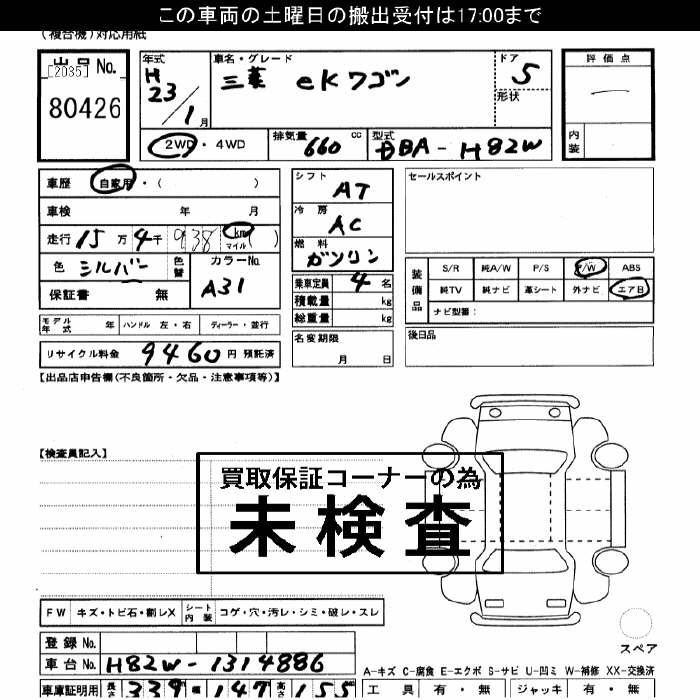 この車両の土曜日の搬出受付は17:00まで
(複合機)対応用紙
出品No.
[2035]
80426
年式
H
23/1月
車名・グレード
三菱 eKワゴン
ドア
5
形状
評価点
内装
2WD・4WD
排気量
660 cc
型式
DBA-H82W
車歴 自家用・( )
車検 年 月
走行 15万4千938 km マイル( )
色 シルバー 色替
カラーNo.
A31
保証書 無
シフト
AT
冷房
AC
燃料
ガソリン
乗車定員 4名
積載量 kg
総重量 kg
セールスポイント
装備品
S/R 純A/W P/S P/W ABS
純TV 純ナビ 革シート 外ナビ エアB
ナビ型番:
モデル年式 年 ハンドル 左・右 ディーラー・並行
名変期限
月 日
後日品
リサイクル料金 9460円 預託済
【出品店申告欄(不良箇所・欠品・注意事項等)】
【検査員記入】
買取保証コーナーの為
未検査
FW キズ・トビ石・割レX シート内装 コゲ・穴・汚レ・シミ・破レ・スレ
スペア
登録No.
車台No. H82W-1314886
A-キズ C-腐食 E-エクボ S-サビ U-凹ミ W-補修 XX-交換済
車庫証明用 長さ 339 幅 147 高さ 155
工具 有・無 ジャッキ 有・無